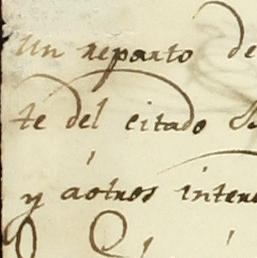 Un reparto de
te del citado
y aótros inten